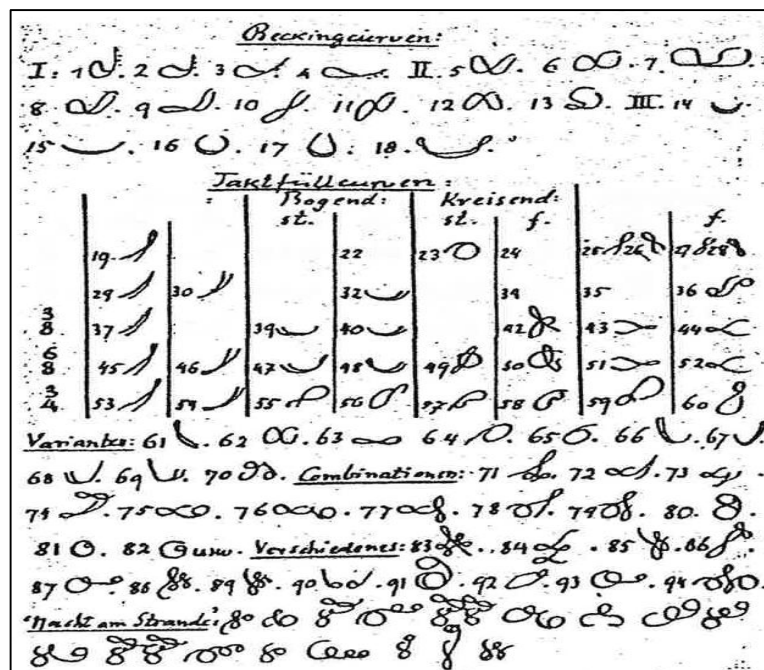 Beckingcurven:
I: 1 . 2 . 3 . 4 . II. 5 . 6 . 7 .
8 . 9 . 10 . 11 . 12 . 13 . III. 14 .
15 . 16 . 17 . 18 .
Taktfüllcurven:
: Bogend: Kreisend:
st. st. f. f.
19 22 23 24 25 26 27 28
29 30 32 34 35 36
3/8 37 39 40 42 43 44
6/8 45 46 47 48 49 50 51 52
3/4 53 54 55 56 57 58 59 60
Varianten: 61 . 62 . 63 64 . 65 . 66 . 67 .
68 . 69 . 70 . Combinationen: 71 . 72 . 73 .
74 . 75 . 76 . 77 . 78 . 79 . 80 .
81 . 82 usw. Verschiedenes: 83 . 84 . 85 . 86
87 . 88 . 89 . 90 . 91 . 92 . 93 . 94 .
"Nacht am Strande":